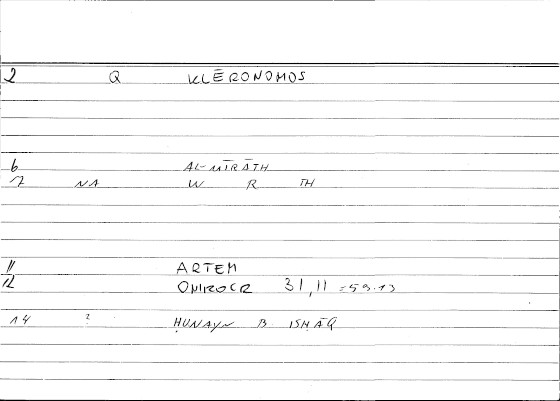 2 Q KLĒRONOMOS
6 AL-MĪRĀTH
7 NA W R TH
11 ARTEM
12 ONIROCR 31,11 = 59.13
14 ? ḤUNAYN B ISḤĀQ